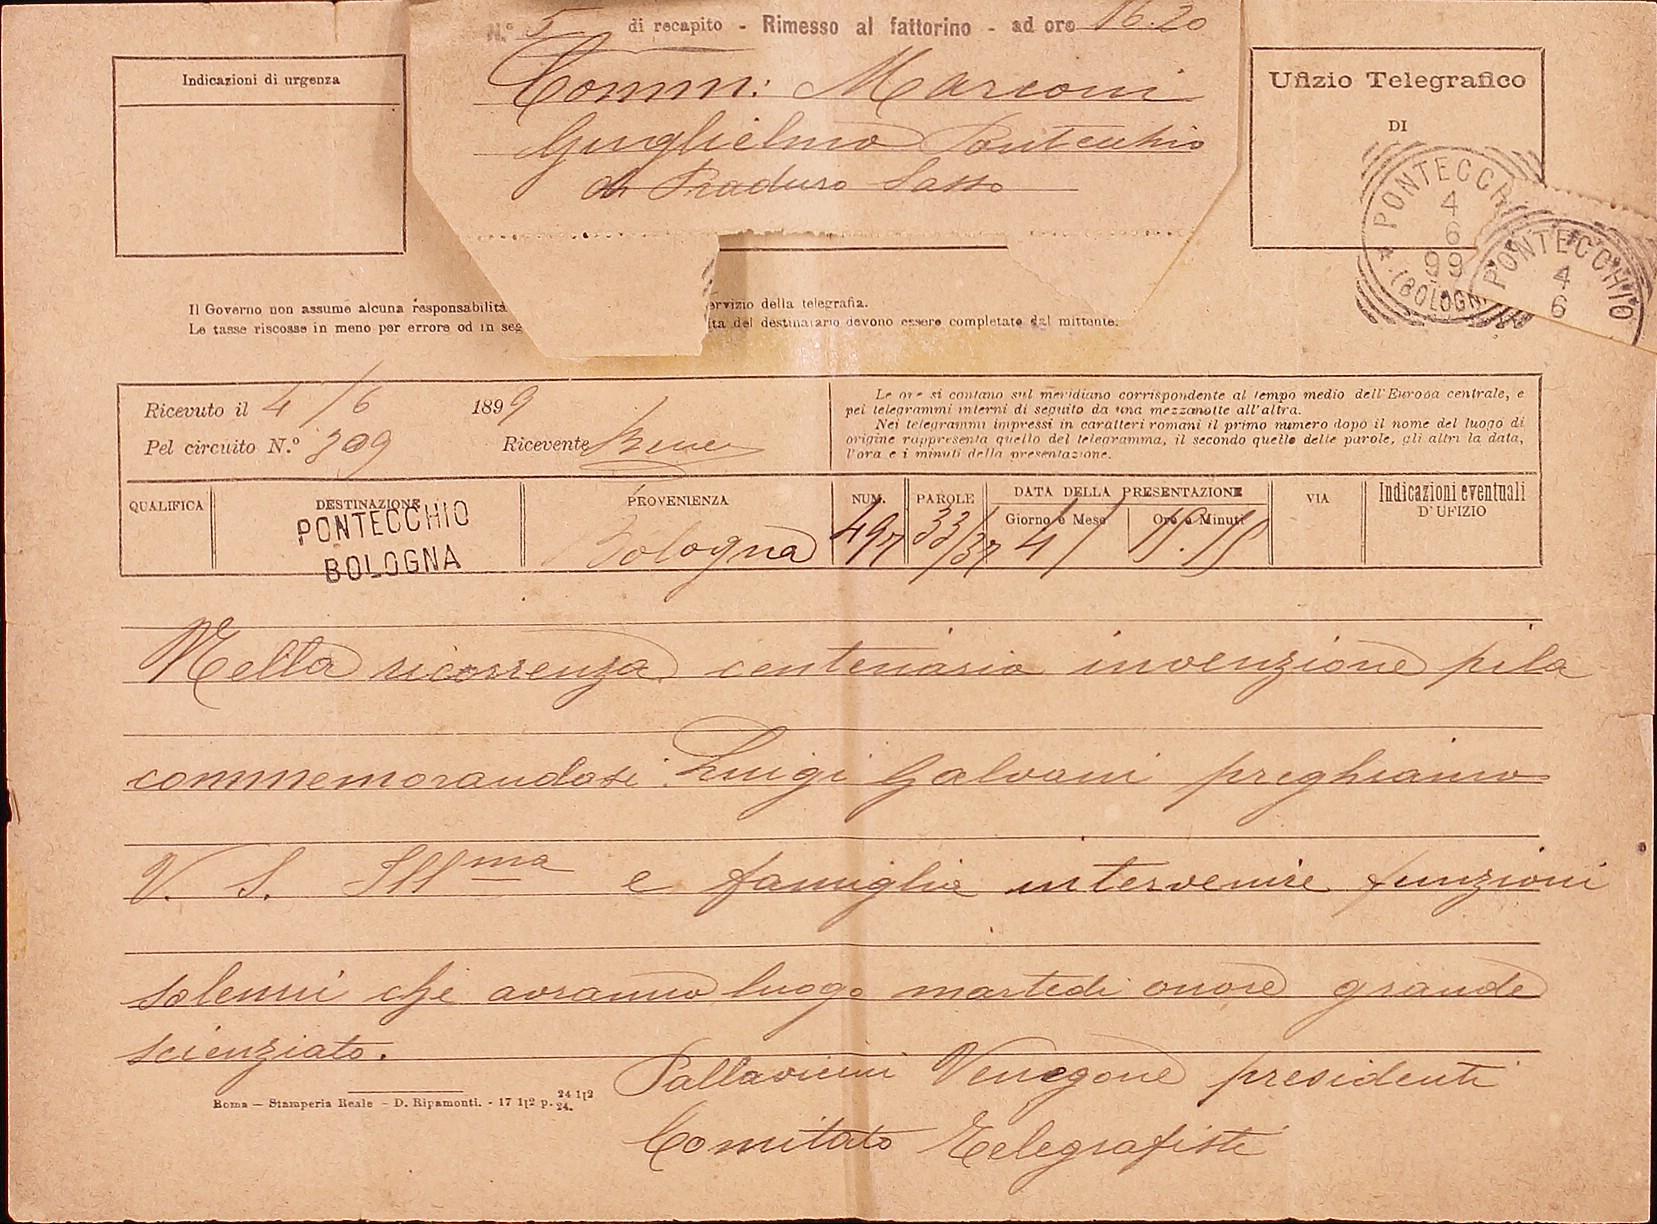 N.° 5 di recapito - Rimesso al fattorino - ad ore 16.20
Comm: Marconi
Guglielmo Pontecchio
di Praduro Sasso
Indicazioni di urgenza
Ufizio Telegrafico
DI
PONTECCH
4
6
99
(BOLOGN
PONTECCHIO
4
6
Il Governo non assume alcuna responsabilità
ervizio della telegrafia.
Le tasse riscosse in meno per errore od in seg
ita del destinatario devono essere completate dal mittente.
Ricevuto il 4/6 1899
Pel circuito N.° 309 Ricevente
Le ore si contano sul meridiano corrispondente al tempo medio dell'Europa centrale, e
pei telegrammi interni di seguito da una mezzanotte all'altra.
Nei telegrammi impressi in caratteri romani il primo numero dopo il nome del luogo di
origine rappresenta quello del telegramma, il secondo quello delle parole, gli altri la data,
l'ora e i minuti della presentazione.
QUALIFICA
DESTINAZIONE
PROVENIENZA
NUM.
PAROLE
DATA DELLA PRESENTAZIONE
Giorno e Mese
Ore e Minuti
VIA
Indicazioni eventuali
D'UFIZIO
PONTECCHIO
BOLOGNA
Bologna 497 33/37 4/ 15.15
Nella ricorrenza centenario invenzione pila
commemorandosi Luigi Galvani preghiamo
V. S. Ill^ma e famiglia intervenire funzioni
solenni che avranno luogo martedi onore grande
scienziato.
Pallavicini Venegone presidenti
Comitato Telegrafisti
Roma — Stamperia Reale — D. Ripamonti. - 17 1|2 p. 24 1|2 24.